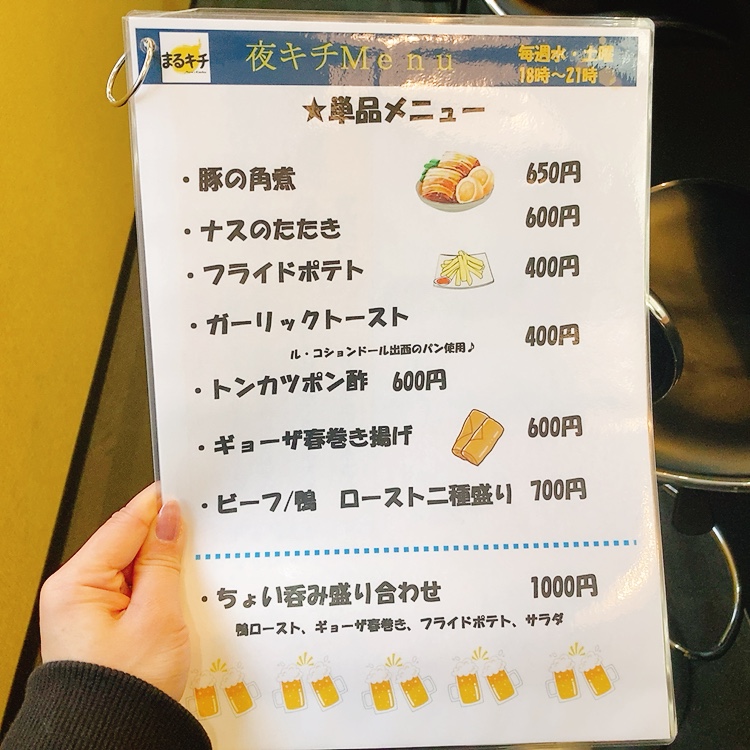 まるキチ
夜キチMenu
毎週水・土曜
18時～21時
★単品メニュー
・豚の角煮 650円
・ナスのたたき 600円
・フライドポテト 400円
・ガーリックトースト 400円
ル・コションドール出西のパン使用♪
・トンカツポン酢 600円
・ギョーザ春巻き揚げ 600円
・ビーフ/鴨 ロースト二種盛り 700円
・ちょい呑み盛り合わせ 1000円
鴨ロースト、ギョーザ春巻き、フライドポテト、サラダ